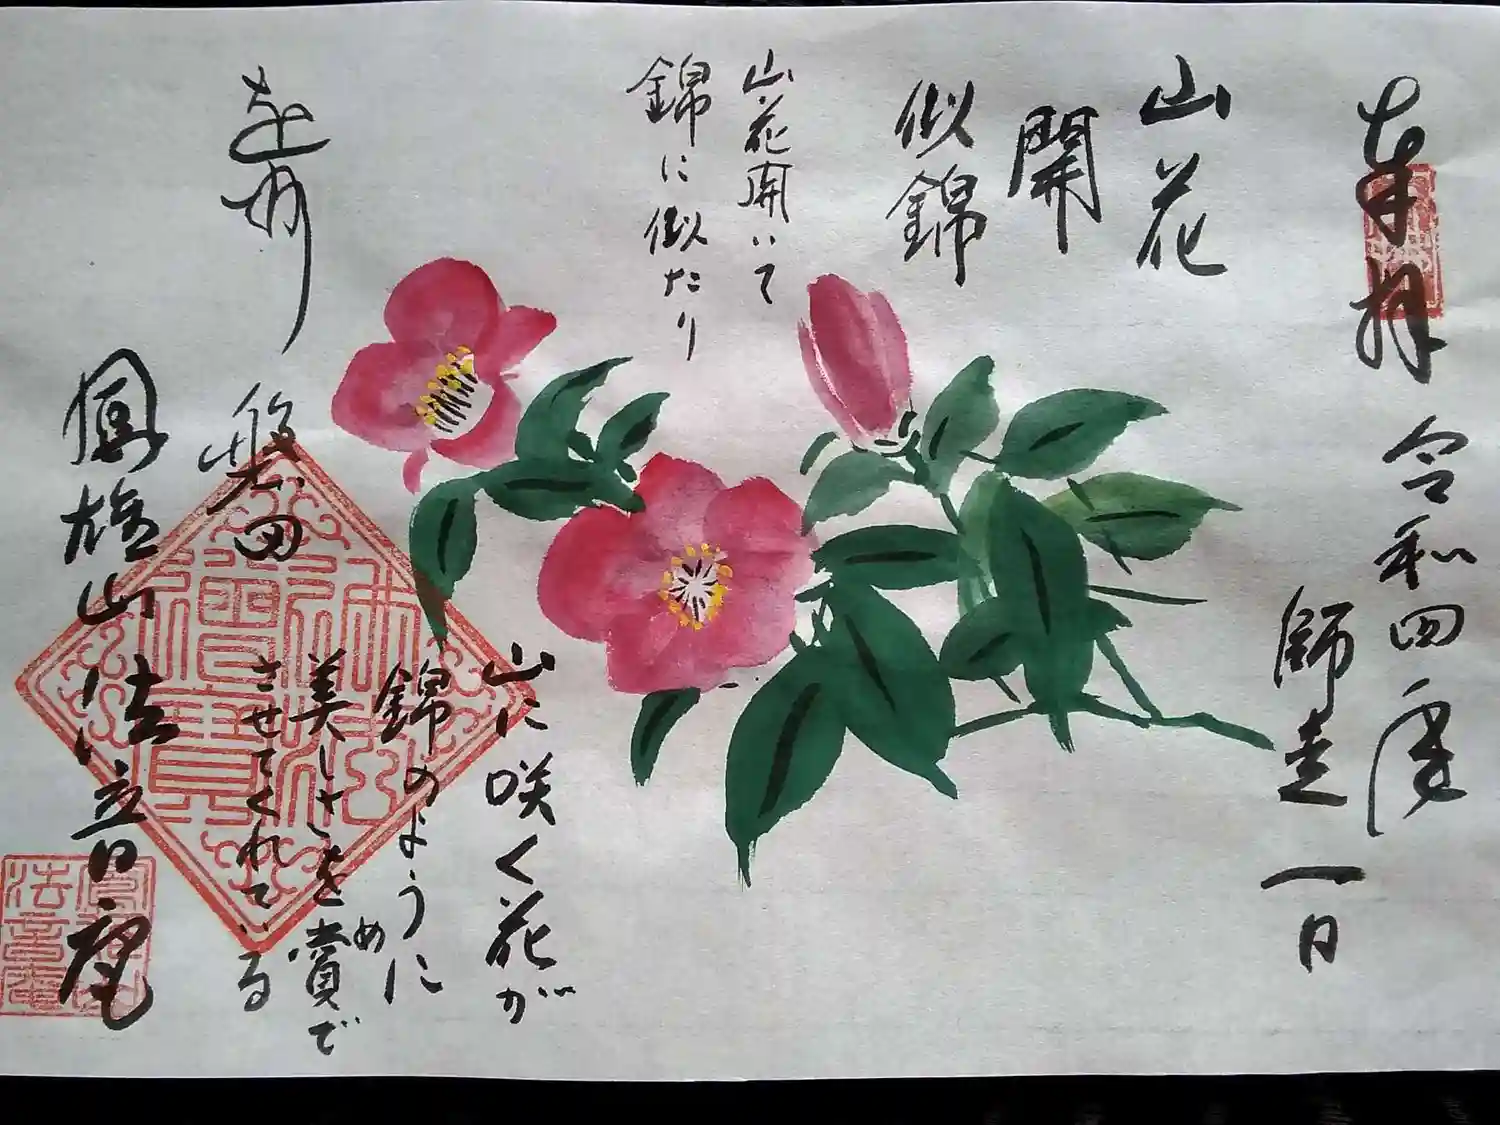 奉拝
令和四年
師走一日
山花
開
似錦
山花開いて
錦に似たり
山に咲く花が
錦のように
美しさを賞め
させてくれている
遠州
磐田
鳳雄山
法雲寺
佛法
僧寶